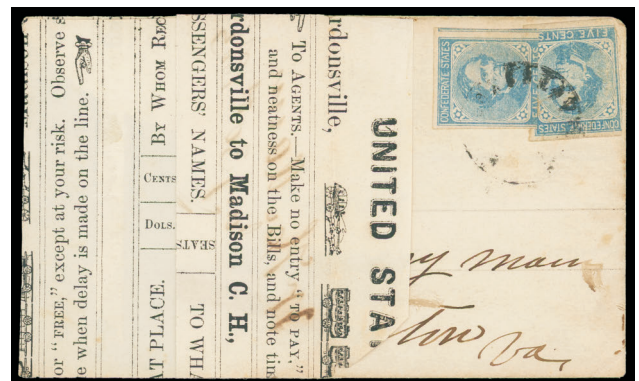 or "FREE," except at your risk. Observe
when delay is made on the line.
BY WHOM REC
CENTS
DOLS.
AT PLACE.
SSENGERS' NAMES.
SEATS
TO WHA
rdonsville to Madison C. H.,
To AGENTS.—Make no entry "TO PAY,"
and neatness on the Bills, and note tim
rdonsville,
UNITED STA
CONFEDERATE STATES
FIVE CENTS
CONFEDERATE STATES
y Mau
ton
Va,